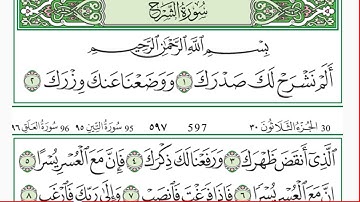 سُورَةُ الشَّرْحِ
بِسْمِ اللَّهِ الرَّحْمَٰنِ الرَّحِيمِ
أَلَمْ نَشْرَحْ لَكَ صَدْرَكَ ١ وَوَضَعْنَا عَنكَ وِزْرَكَ ٢
30 الجُزْءُ الثَّلَاثُونَ ٣٠ 597 ٥٩٧ 95 سُورَةُ التِّينِ ٩٥ 96 سُورَةُ العَلَقِ ٩٦
الَّذِي أَنقَضَ ظَهْرَكَ ٣ وَرَفَعْنَا لَكَ ذِكْرَكَ ٤ فَإِنَّ مَعَ الْعُسْرِ يُسْرًا ٥
إِنَّ مَعَ الْعُسْرِ يُسْرًا ٦ فَإِذَا فَرَغْتَ فَانصَبْ ٧ وَإِلَىٰ رَبِّكَ فَارْغَب ٨